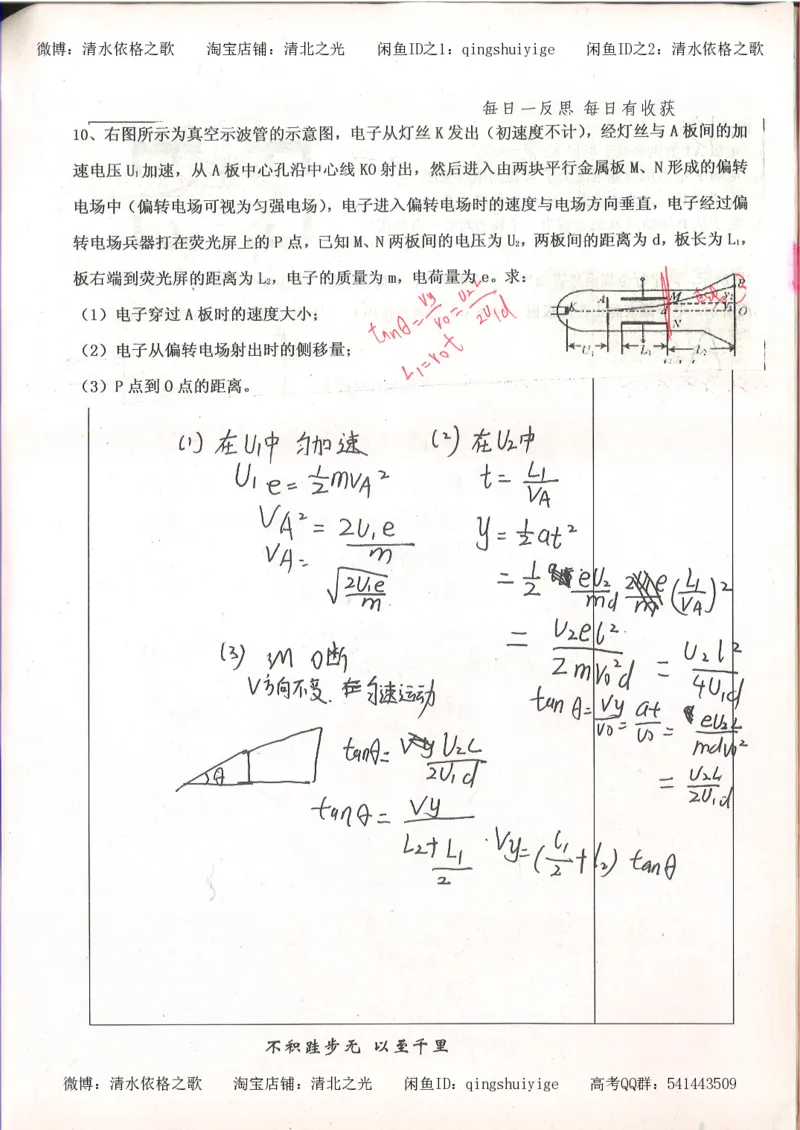 微博：清水依格之歌 淘宝店铺：清北之光 闲鱼ID之1：qingshuiyige 闲鱼ID之2：清水依格之歌
每日一反思 每日有收获
10、右图所示为真空示波管的示意图，电子从灯丝 K 发出（初速度不计），经灯丝与 A 板间的加
速电压 U₁加速，从 A 板中心孔沿中心线 KO 射出，然后进入由两块平行金属板 M、N 形成的偏转
电场中（偏转电场可视为匀强电场），电子进入偏转电场时的速度与电场方向垂直，电子经过偏
转电场兵器打在荧光屏上的 P 点，已知 M、N 两板间的电压为 U₂，两板间的距离为 d，板长为 L₁，
板右端到荧光屏的距离为 L₂，电子的质量为 m，电荷量为 e。求：
（1）电子穿过 A 板时的速度大小；
（2）电子从偏转电场射出时的侧移量；
（3）P 点到 O 点的距离。
tanθ=vy/v0=U2L/2U1d
L1=v0t
K A M N d P O
U₁ L₁ L₂
(1) 在U1中 匀加速
U1e=½mVA²
VA²=2U1e/m
VA=√(2U1e/m)
(2) 在U2中
t=L1/VA
y=½at²
=½ eU2/md (L1/VA)²
=U2el²/2mv0²d =U2l²/4U1d
tanθ=Vy/V0=at/v0=eU2L/mdv0²
=U2L/2U1d
(3) 从M O断
V方向不变. 在匀速运动
θ
tanθ=U2L/2U1d
tanθ=Vy/(L2+L1/2) · Vy=(L1/2+L2) tanθ
不积跬步无 以至千里
微博：清水依格之歌 淘宝店铺：清北之光 闲鱼ID：qingshuiyige 高考QQ群：541443509